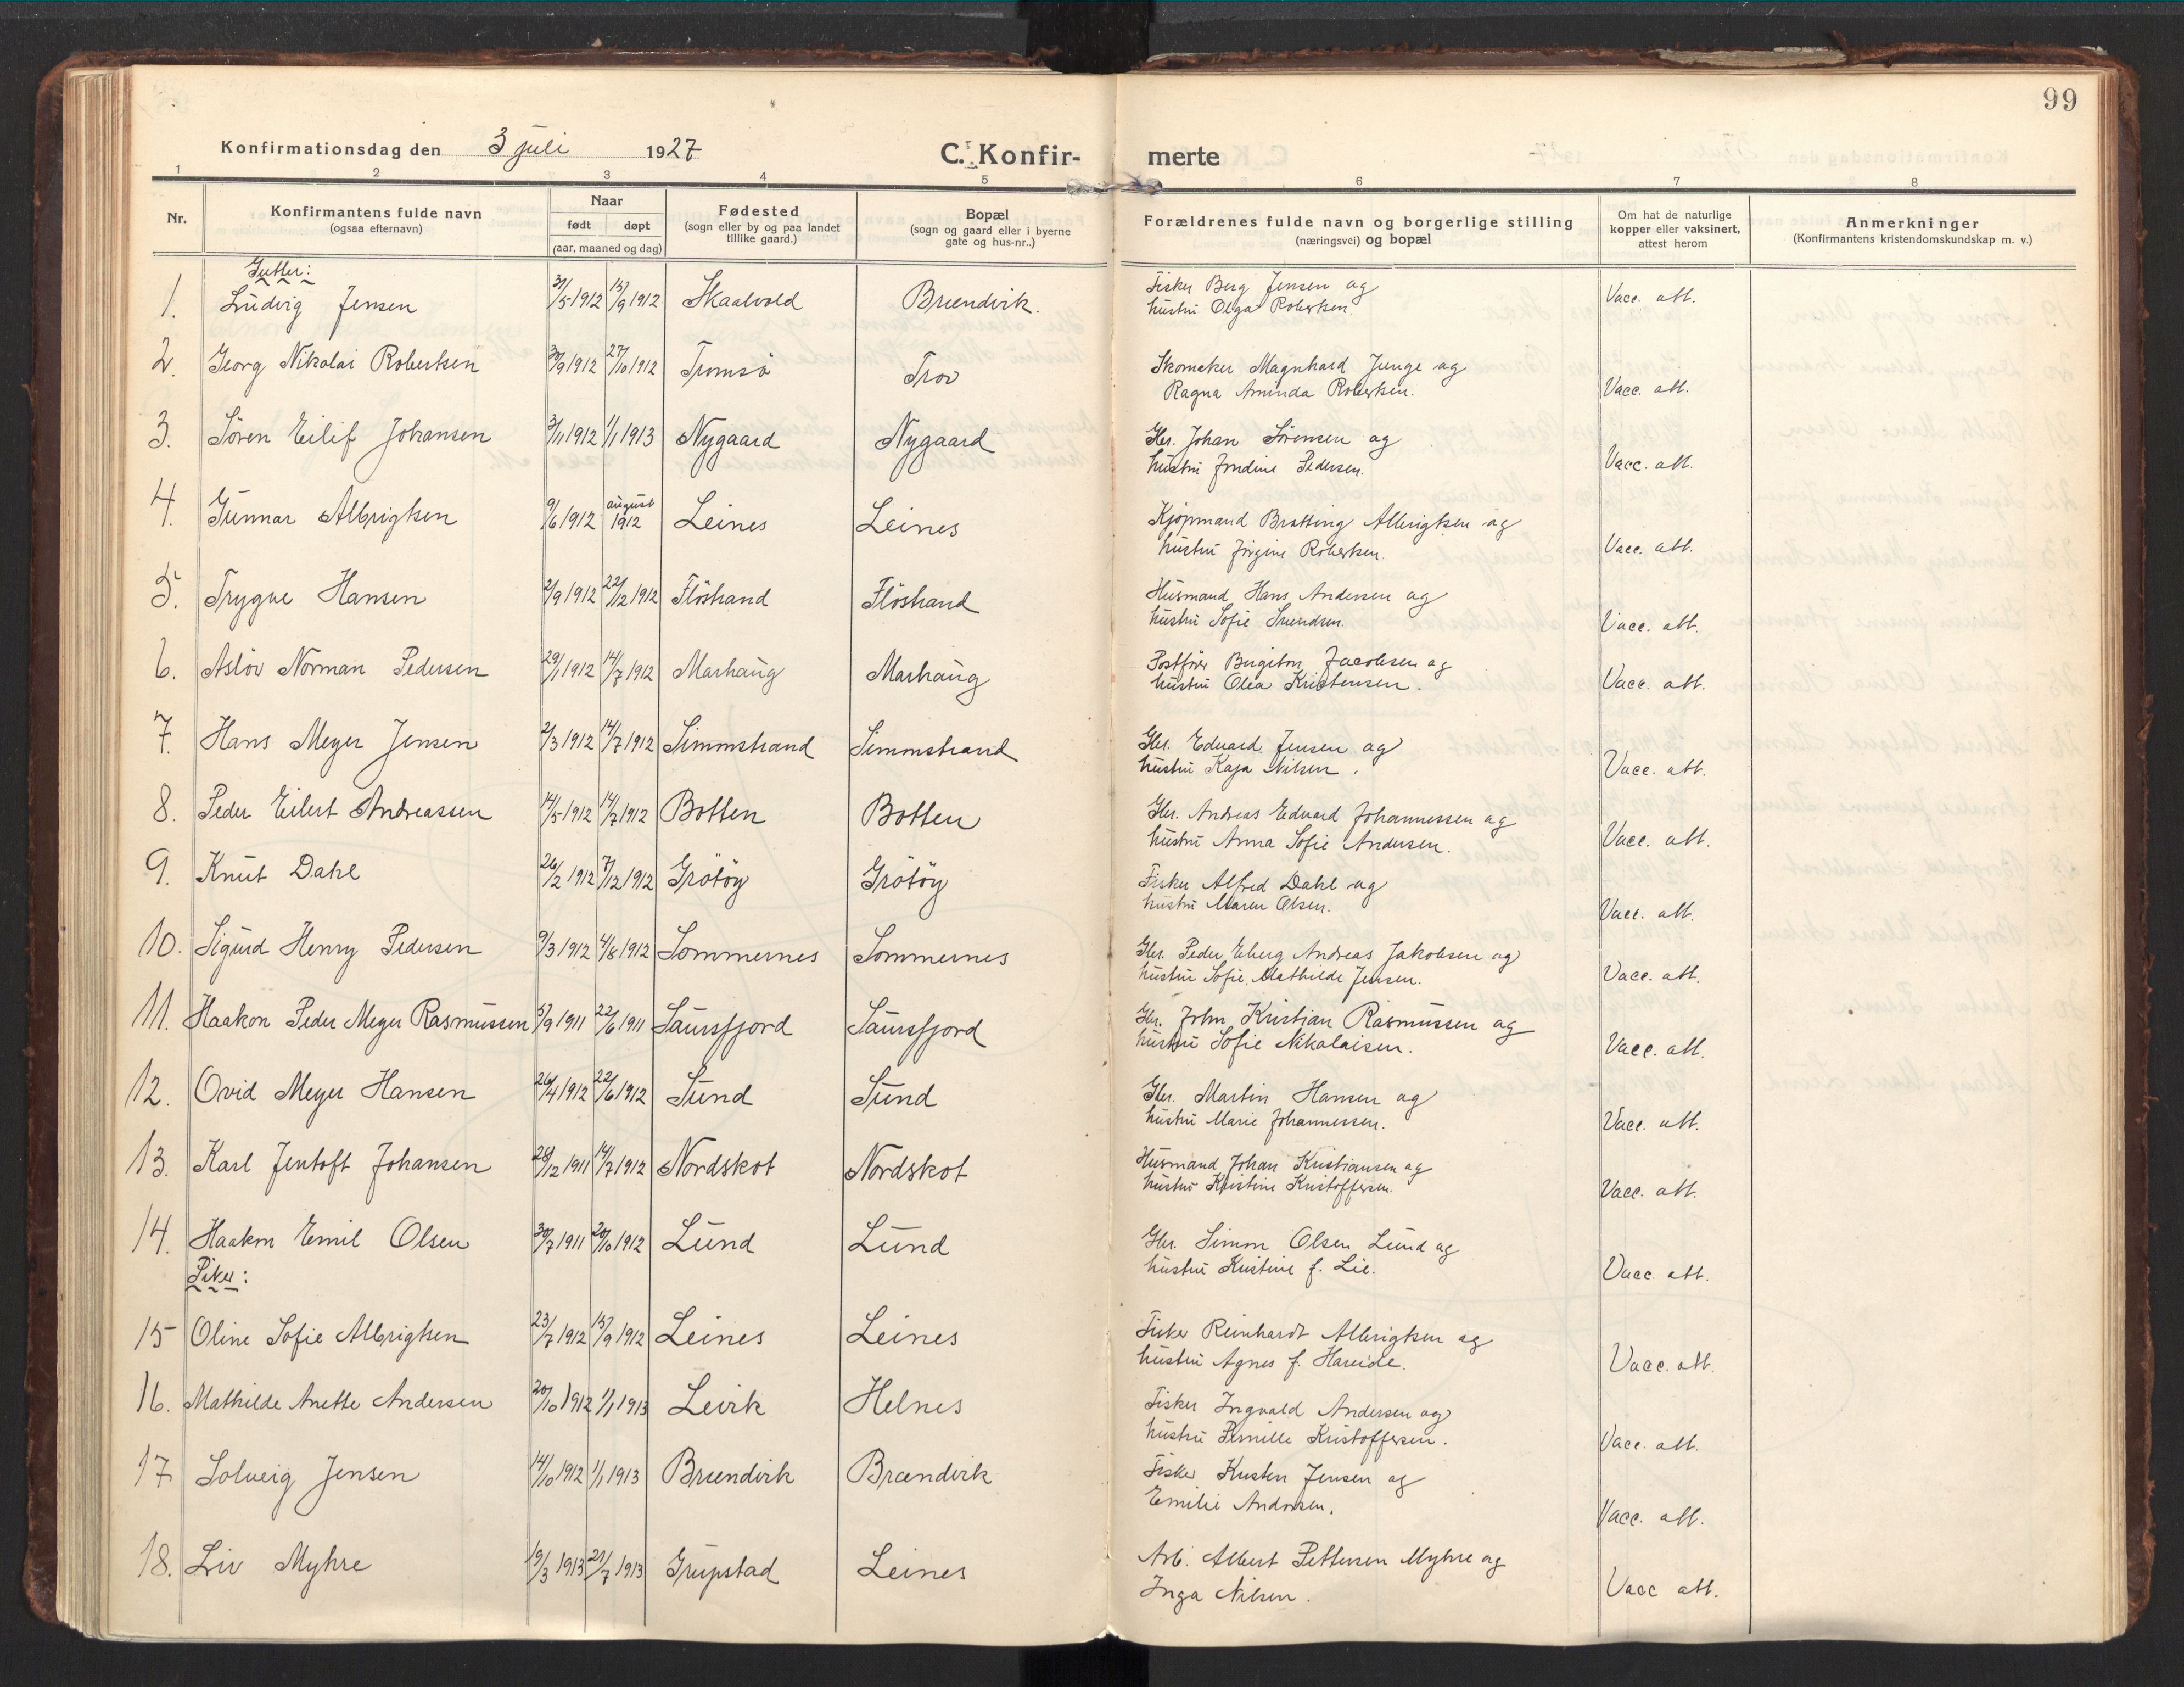 99
Konfirmationsdag den 3 juli 1927 C. Konfir- merte
1 2 3 4 5 6 7 8
Nr. Konfirmantens fulde navn (ogsaa efternavn) Naar født døpt (aar, maaned og dag) Fødested (sogn eller by og paa landet tillike gaard.) Bopæl (sogn og gaard eller i byerne gate og hus-nr..) Forældrenes fulde navn og borgerlige stilling (næringsvei) og bopæl Om hat de naturlige kopper eller vaksinert, attest herom Anmerkninger (Konfirmantens kristendomskundskap m. v.)
Gutter:
1. Ludvig Jensen 31/5 1912 15/9 1912 Skaalvold Brændvik. Fisker Berg Jensen og Vacc. att.
hustru Olga Robertsen.
2. Georg Nikolai Robertsen 30/9 1912 27/10 1912 Tromsö Trov Skomaker Magnhard Junge og
Ragna Aminda Robertsen. Vacc. att.
3. Sören Eilif Johansen 3/11 1912 1/1 1913 Nygaard Nygaard Gbr. Johan Sörensen og
hustru Jondine Pedersen. Vacc. att.
4. Gunnar Albrigtsen 9/6 1912 august 1912 Leines Leines Kjöpmand Bratting Albrigtsen og
hustru Jörgine Robertsen. Vacc. att.
5. Trygve Hansen 2/9 1912 22/12 1912 Flöstrand Flöstrand Husmand Hans Andersen og
hustru Sofie Svendsen. Vacc. att.
6. Aslöv Norman Pedersen 29/1 1912 14/7 1912 Marhaug Marhaug Postförer Bergiton Jacobsen og
hustru Olea Kristensen. Vacc. att.
7. Hans Meyer Jensen 2/3 1912 14/7 1912 Simmstrand Simmstrand Gbr. Edvard Jensen og
hustru Kaja Nilsen. Vacc. att.
8. Peder Eilert Andreassen 14/5 1912 14/7 1912 Botten Botten Gbr. Andreas Edvard Johannessen og
hustru Anna Sofie Andersen. Vacc. att.
9. Knut Dahl 26/2 1912 7/12 1912 Grötöy Grötöy Fisker Alfred Dahl og
hustru Maren Olsen. Vacc. att.
10. Sigurd Henry Pedersen 9/3 1912 4/8 1912 Sommernes Sommernes Gbr. Peder Eberg Andreas Jakobsen og
hustru Sofie Mathilde Jensen. Vacc. att.
11. Haakon Peder Meyer Rasmussen 5/9 1911 22/6 1911 Saursfjord Saursfjord Gbr. John Kristian Rasmussen og
hustru Sofie Nikolaisen. Vacc. att.
12. Ovid Meyer Hansen 26/4 1912 22/6 1912 Sund Sund Gbr. Martin Hansen og
hustru Marie Johannessen. Vacc. att.
13. Karl Jentoft Johansen 28/12 1911 14/7 1912 Nordskot Nordskot Husmand Johan Kristiansen og
hustru Kristine Kristoffersen. Vacc. att.
14. Haakon Emil Olsen 30/7 1911 20/10 1912 Lund Lund Gbr. Simon Olsen Lund og
hustru Kristine f. Lie. Vacc. att.
Piker:
15 Oline Sofie Albrigtsen 23/7 1912 15/9 1912 Leines Leines Fisker Reinhardt Albrigtsen og
hustru Agnes f. Hareide. Vacc. att.
16. Mathilde Anette Andersen 20/10 1912 1/1 1913 Leivik Helnes Fisker Ingvald Andersen og
hustru Pernille Kristoffersen. Vacc. att.
17 Solveig Jensen 14/10 1912 1/1 1913 Brændvik Brændvik Fisker Kristen Jensen og
Emilie Andersen. Vacc. att.
18. Liv Myhre 19/3 1913 27/7 1913 Grupstad Leines Arb. Albert Pettersen Myhre og
Inga Nilsen. Vacc att.